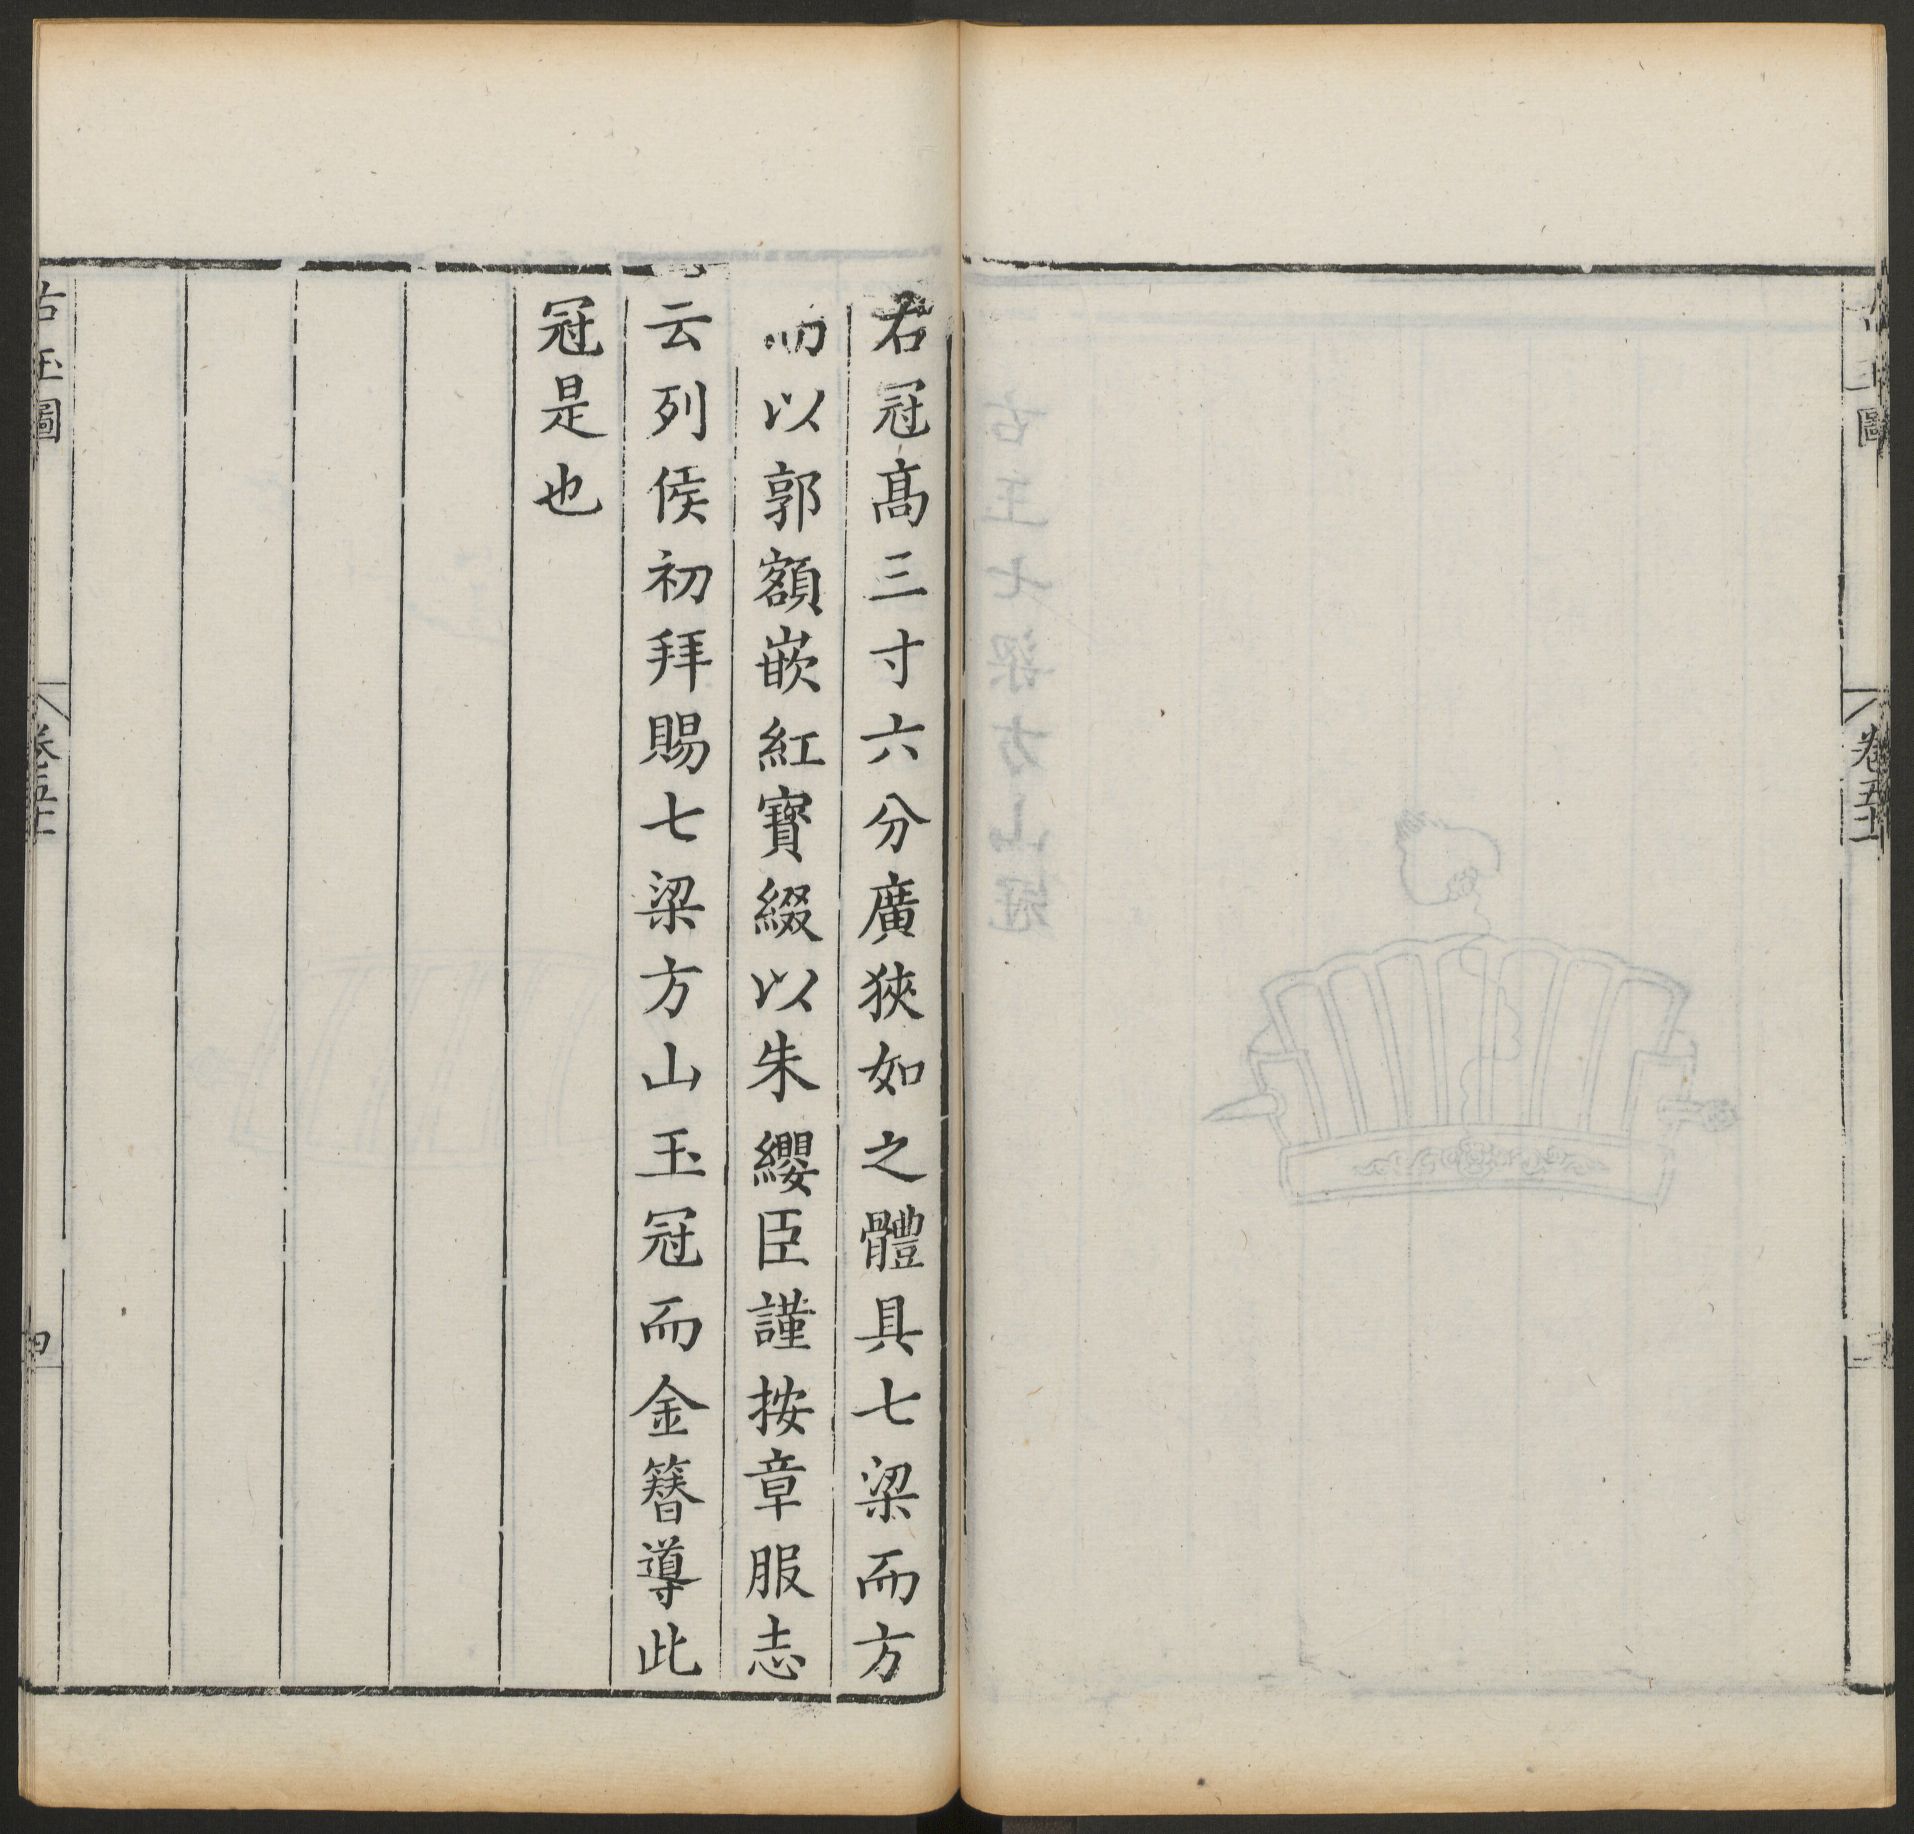 古玉圖
卷五十
右冠高三寸六分廣狹如之體具七梁而方
而以郭額嵌紅寶綴以朱纓臣謹按章服志
云列侯初拜賜七梁方山玉冠而金簪導此
冠是也
古玉圖
四